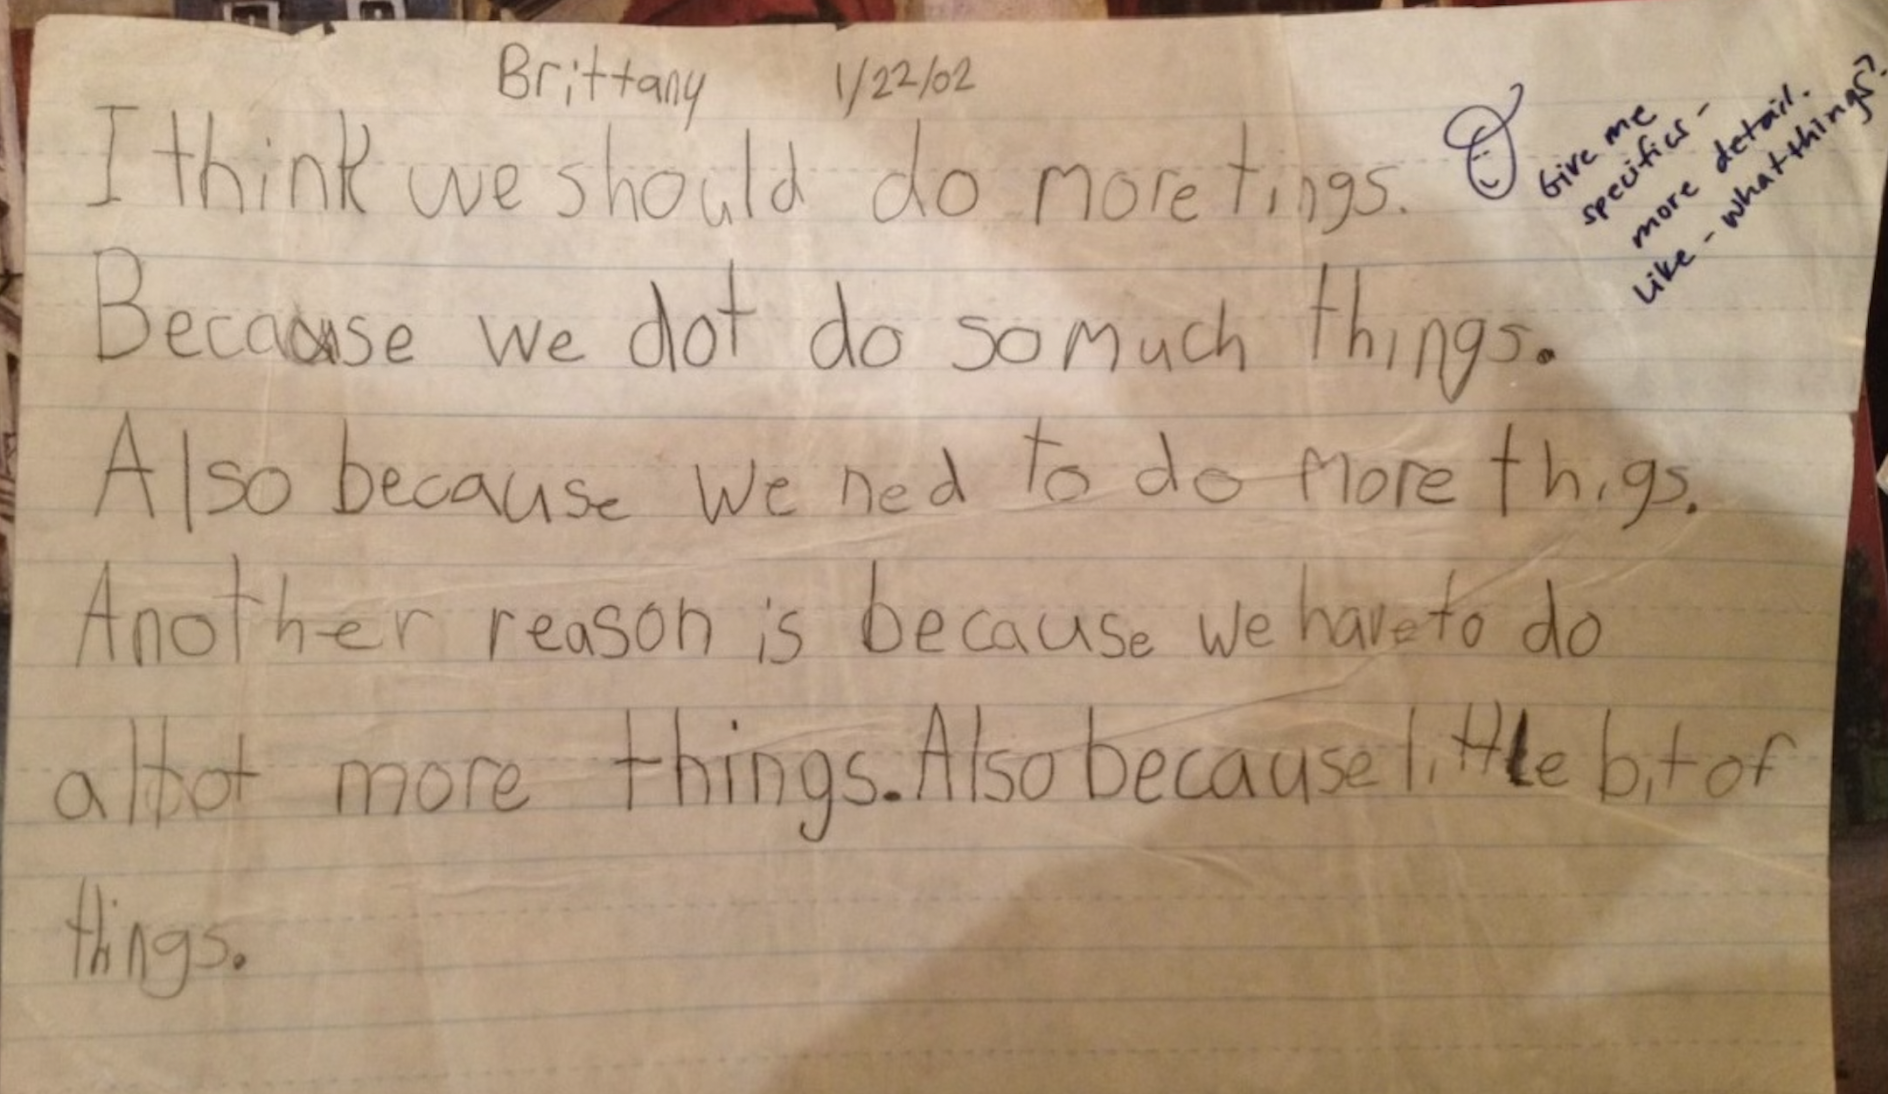 Brittany 1/22/02
I think we should do more tings.
Because we dot do so much things.
Also because we ned to do more thigs.
Another reason is because we have to do
a lot more things. Also because little bit of
things.
Give me
specifics -
more detail.
Like - what things?